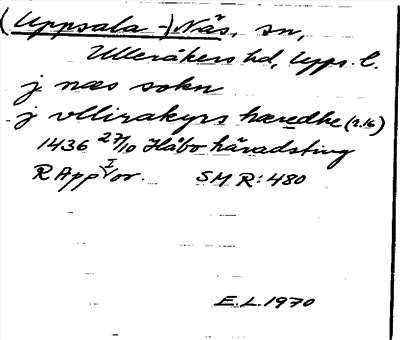 (Uppsala-)Näs, sn,
Ulleråkers hd, Upps. l.
j næs sokn
j vllirakyrs hæredhe (r.16)
1436 27/10 Håbo häradsting
R App I or. SMR: 480
E.L. 1970